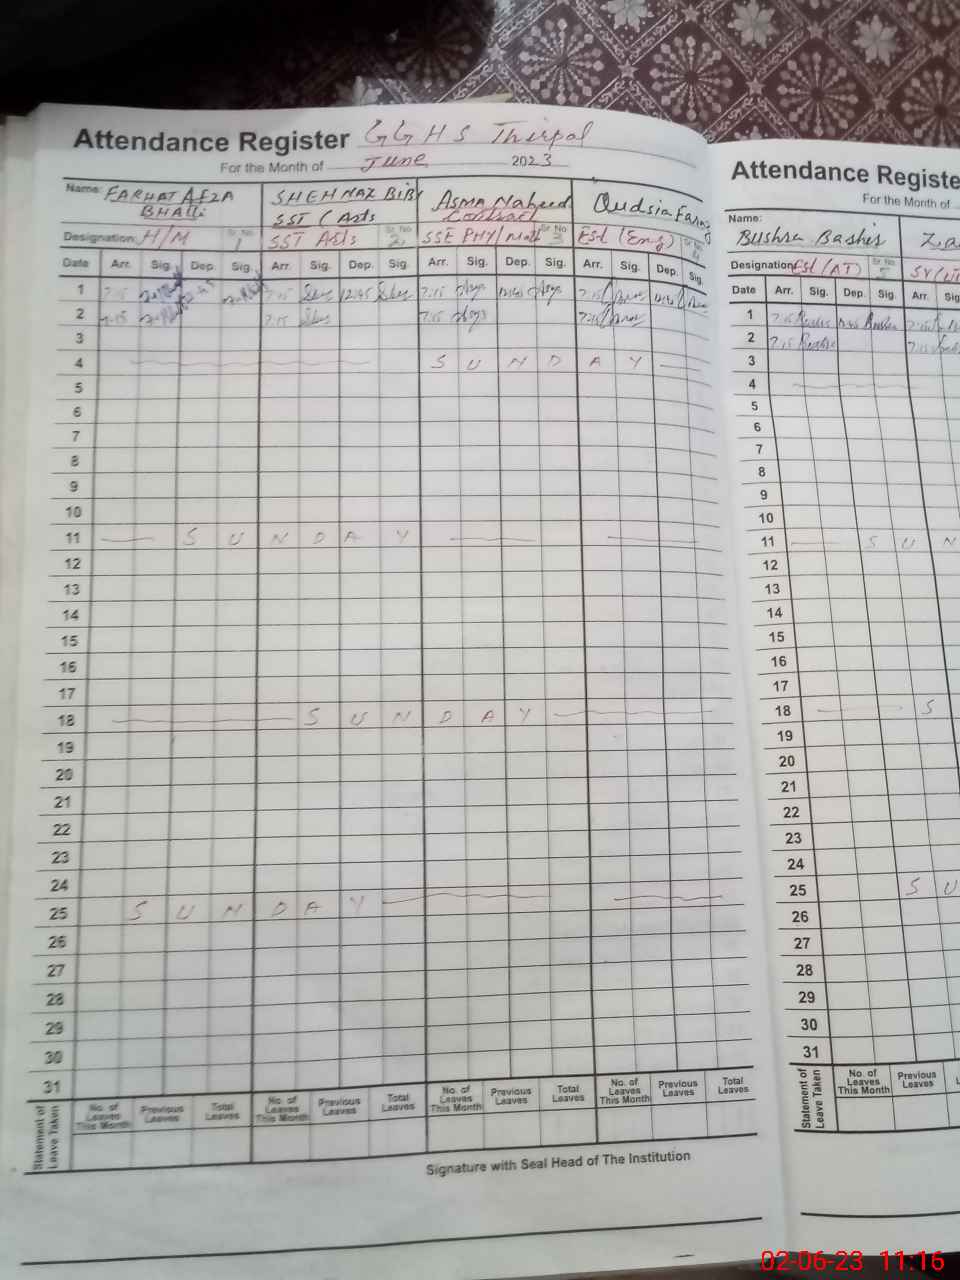 Attendance Register GGHS Thirpal
For the Month of June 2023
Name: FARHAT AFZA SHEHNAZ BIBI ASMA Naheed Qudsia
BHATTI SST (Arts Contract
Designation: H/M Sr. No. 1 SST Arts Sr. No. 2 SSE PHY/Math Sr. No. 3 Est (Eng) Sr. No. 4
Date Arr. Sig. Dep. Sig. Arr. Sig. Dep. Sig. Arr. Sig. Dep. Sig. Arr. Sig. Dep. Sig.
1 7:15 12:45 7:15 12:45 7:15 12:45 7:15 12:45
2 7:15 7:15 7:15 7:15
3
4 S U N D A Y
5
6
7
8
9
10
11 S U N D A Y
12
13
14
15
16
17
18 S U N D A Y
19
20
21
22
23
24
25 S U N D A Y
26
27
28
29
30
31
Statement of Leave Taken No. of Leaves This Month Previous Leaves Total Leaves No. of Leaves This Month Previous Leaves Total Leaves No. of Leaves This Month Previous Leaves Total Leaves No. of Leaves This Month Previous Leaves Total Leaves
Signature with Seal Head of The Institution
Attendance Registe
For the Month of
Name:
Bushra Bashir
Designation: Est (AT) Sr. No. 5
Date Arr. Sig. Dep. Sig. Arr.
1 7:15
2 7:15
3
4
5
6
7
8
9
10
11 S U N
12
13
14
15
16
17
18 S
19
20
21
22
23
24
25 S U
26
27
28
29
30
31
Statement of Leave Taken No. of Leaves This Month Previous Leaves
02-06-23 11:16